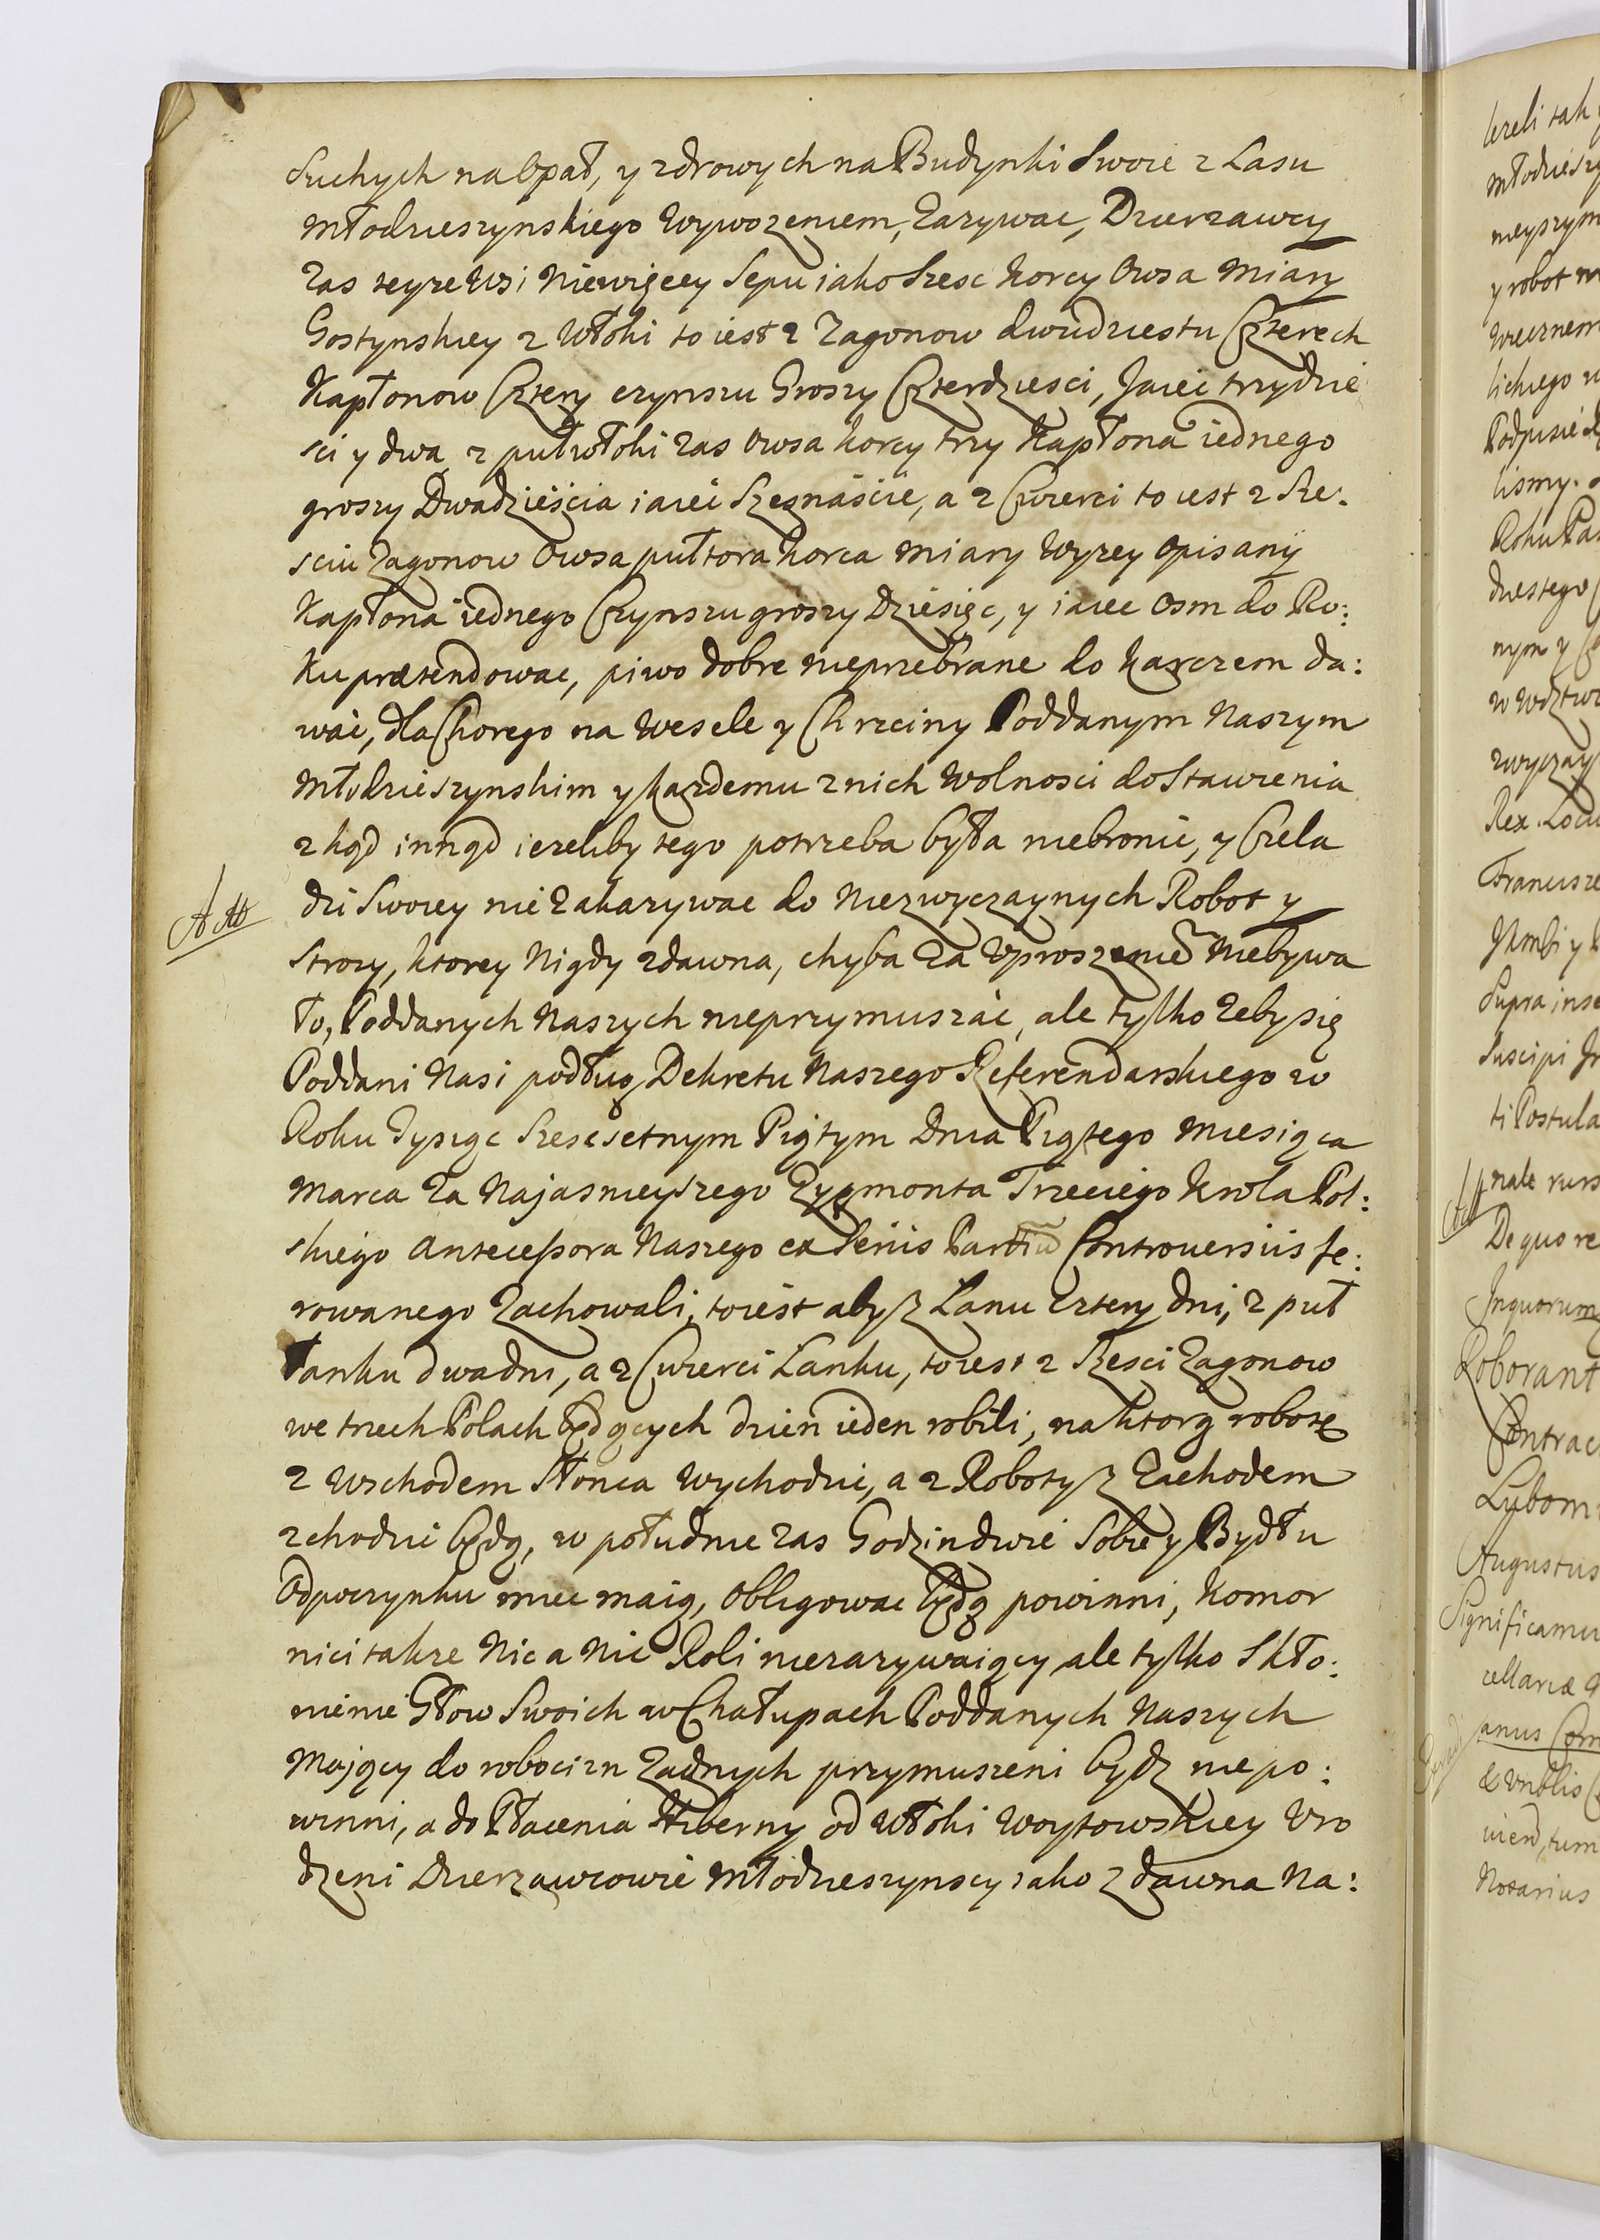 Suchych na Opał, y zdrowych na Budynki Swoie z Lasu
Młodzieszynskiego Wywozeniem, Zazywac, Dzierzawcy
Zas teyze Wsi Niewięcey Sepu iako Szesc Korcy Owsa Miary
Gostynskiey z Włoki to iest z Zagonow dwudziestu Czterech
Kapłonow Cztery czynszu Groszy Czterdziesci, Jaiec trzydzie
sci y dwa z pułwłoki zas Owsa korcy trzy Kapłona iednego
groszy Dwadzieścia iaiec Szesnáście, a z Cwierci to iest z Sze:
sciu Zagonow Owsa pułtora korca Miary Wyzey Opisany
Kapłona iednego Czynszu groszy Dziesięc, y iaiec Osm do Ro:
ku prætendowac, piwo dobre nieprzebrane do Karczem da:
wac, dla Chorego na Wesele y Chrzciny Poddanym Naszym
Młodzieszynskim y kazdemu z nich Wolnosci do Stawienia
z kąd inąd iezeliby tego potrzeba była niebronic, y Czela
dzi Swoiey nie Zakazywac do Niezwyczaynych Robot y
Strozy, ktorey Nigdy zdawna, chyba Za Uproszeniē Niebywa
ło, Poddanych Naszych nieprzymuszac, ale tylko Zeby się
Poddani Nasi podług Dekretu Naszego Referendarskiego w
Roku Tysiąc Szescsetnym Piątym Dnia Piątego Miesiąca
Marca Za Najasnieyszego Zygmonta Trzeciego Krola Pol:
skiego Antecessora Naszego ex Seriis Partiū Controuersiis fe:
rowanego Zachowali, to iest aby z Łanu Cztery dni, z puł
Łanku dwa dni, a z Cwierci Łanku, to iest z Szesci Zagonow
we trzech Polach będących dzien ieden robili, na ktorą robotę
z Wschodem Słonca Wychodzic, a z Roboty z Zachodem
zchodzic będą, w południe zas Godzin dwie Sobie y Bydłu
Odpoczynku miec maią, Obligowac będą powinni, Komor
nici takze Nic a Nic Roli niezazywaiący ale tylko Skło:
nienie Głow Swoich w Chałupach Poddanych Naszych
Mający do robocizn Zadnych przymuszeni bydz niepo:
winni, a do Płacenia Hiberny od Włoki Woytowskiey Uro
dzeni Dzierzawcowie Młodzieszynscy iako z dawna Na: